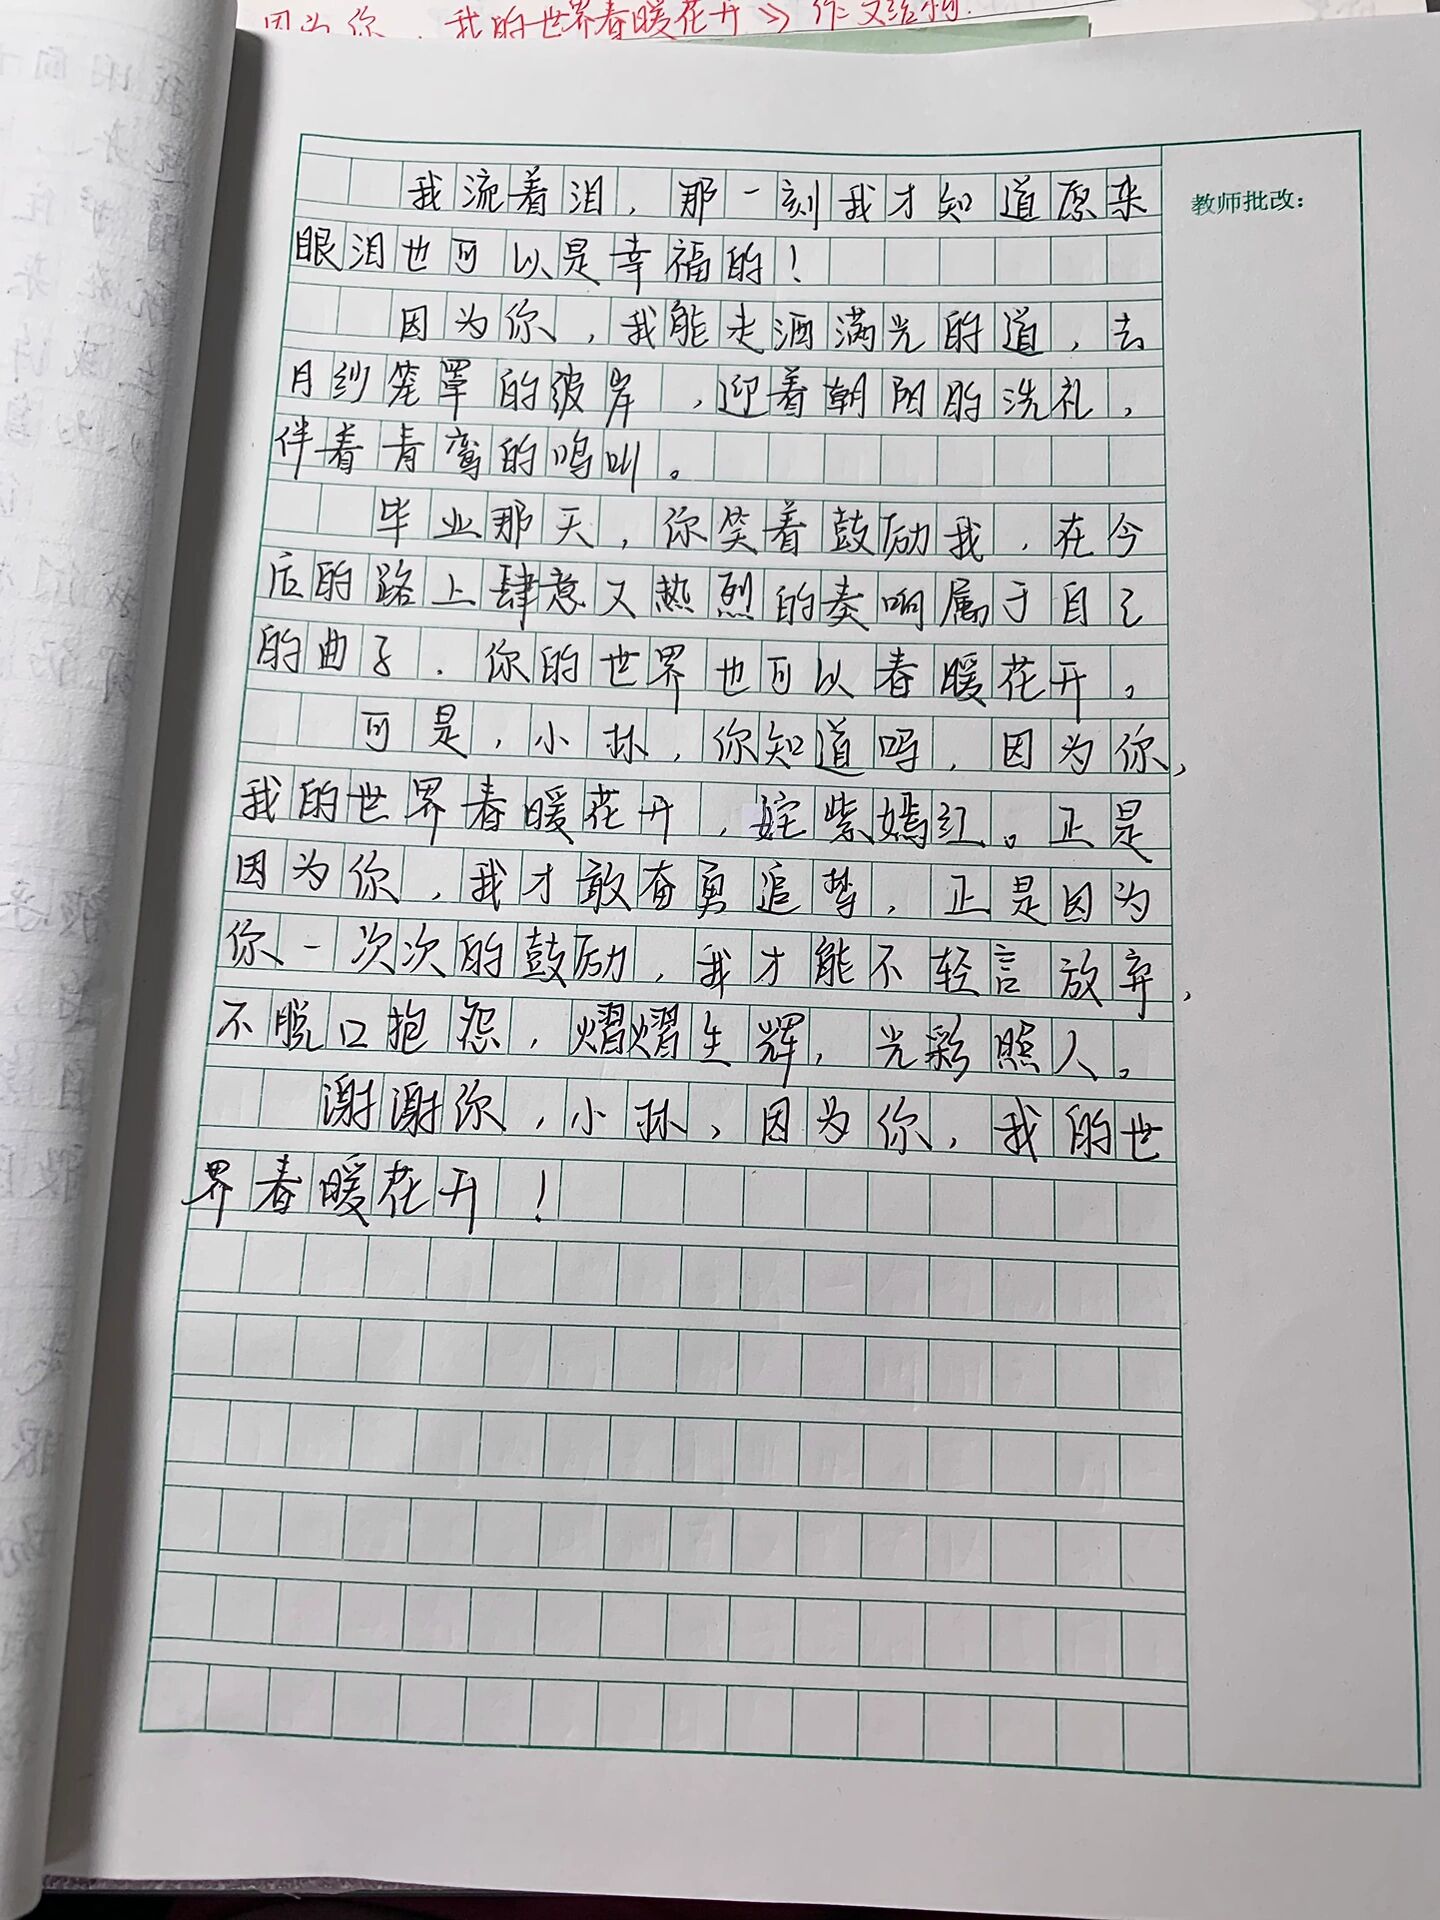 因为你,我的世界春暖花开》作文结构.
教师批改:
我流着泪,那一刻我才知道原来
眼泪也可以是幸福的!
因为你,我能走洒满光的道,去
月纱笼罩的彼岸,迎着朝阳的洗礼,
伴着青鸾的鸣叫。
毕业那天,你笑着鼓励我,在今
后的路上肆意又热烈的奏响属于自己
的曲子.你的世界也可以春暖花开。
可是,小林,你知道吗,因为你,
我的世界春暖花开,姹紫嫣红。正是
因为你,我才敢奋勇追梦,正是因为
你一次次的鼓励,我才能不轻言放弃,
不脱口抱怨,熠熠生辉,光彩照人。
谢谢你,小林,因为你,我的世
界春暖花开!